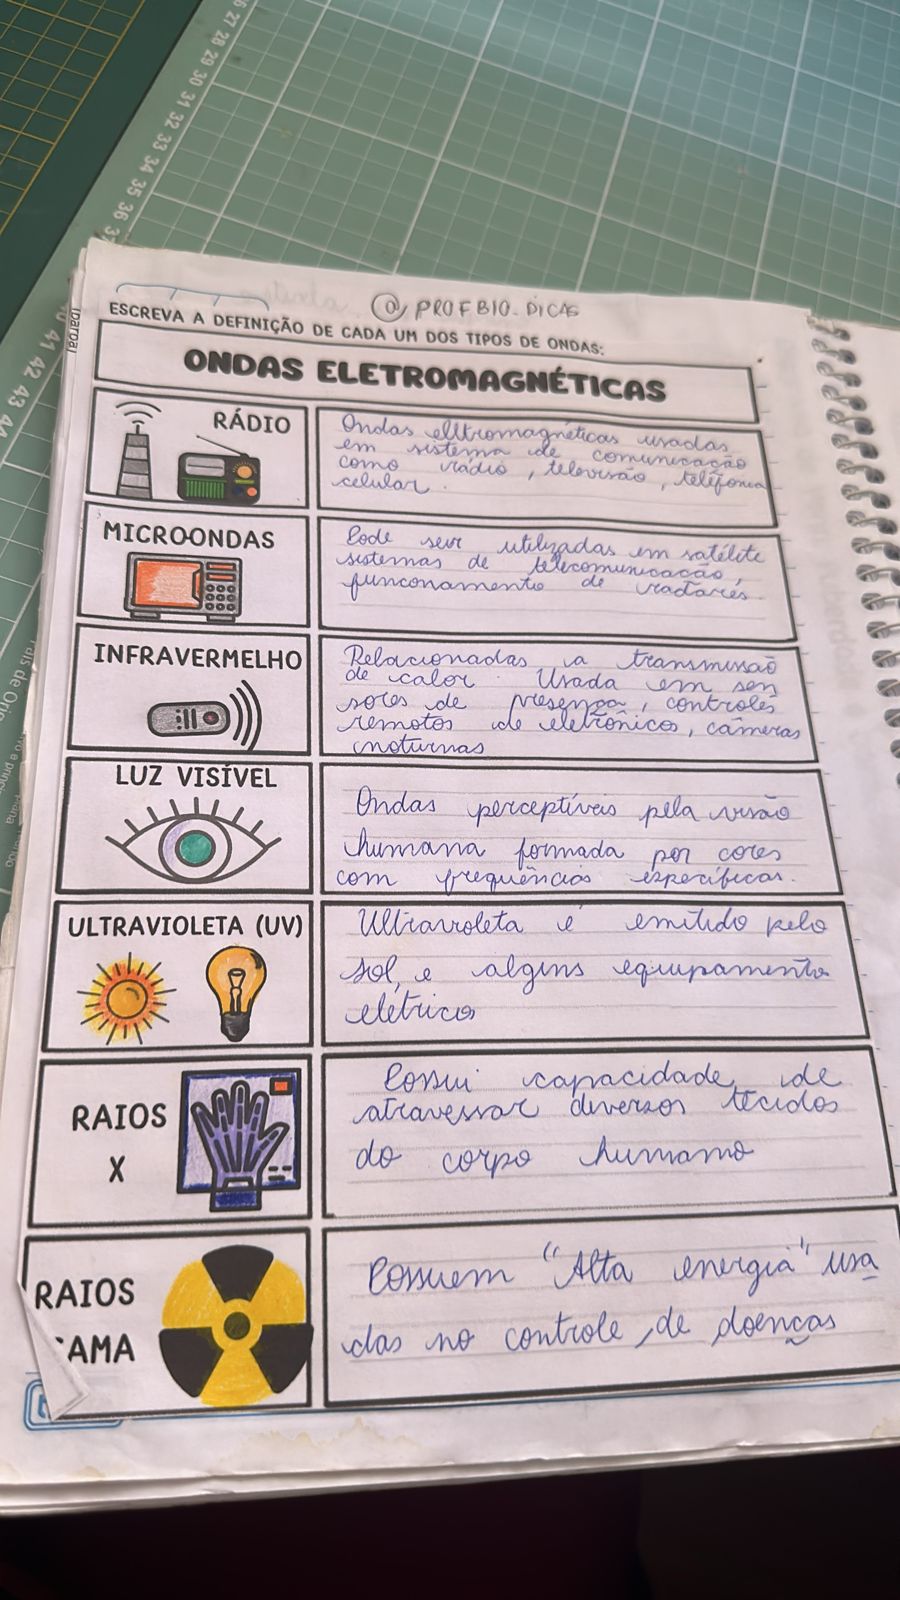 @ PROFBIO.DICAS
ESCREVA A DEFINIÇÃO DE CADA UM DOS TIPOS DE ONDAS:
ONDAS ELETROMAGNÉTICAS
RÁDIO
Ondas eletromagnéticas usadas
em sistema de comunicação
como rádio, televisão, telefonia
celular.
MICROONDAS
Pode ser utilizadas em satélite
sistemas de telecomunicação,
funconamento de radares.
INFRAVERMELHO
Relacionadas a transmissão
de calor. Usada em sen
sores de presença, controles
remotos de eletrônicos, câmeras
noturnas
LUZ VISÍVEL
Ondas perceptíveis pela visão
humana formada por cores
com frequências específicas.
ULTRAVIOLETA (UV)
Ultravioleta é emitido pelo
sol, e algins equipamento
eletrico
RAIOS
X
Possui capacidade de
atravessar diversos tecidos
do corpo humano
RAIOS
AMA
Possuem "Alta energia" usa
das no controle, de doenças
26 27 28 29 30 31 32 33 34 35 36
40 41 42 43 44